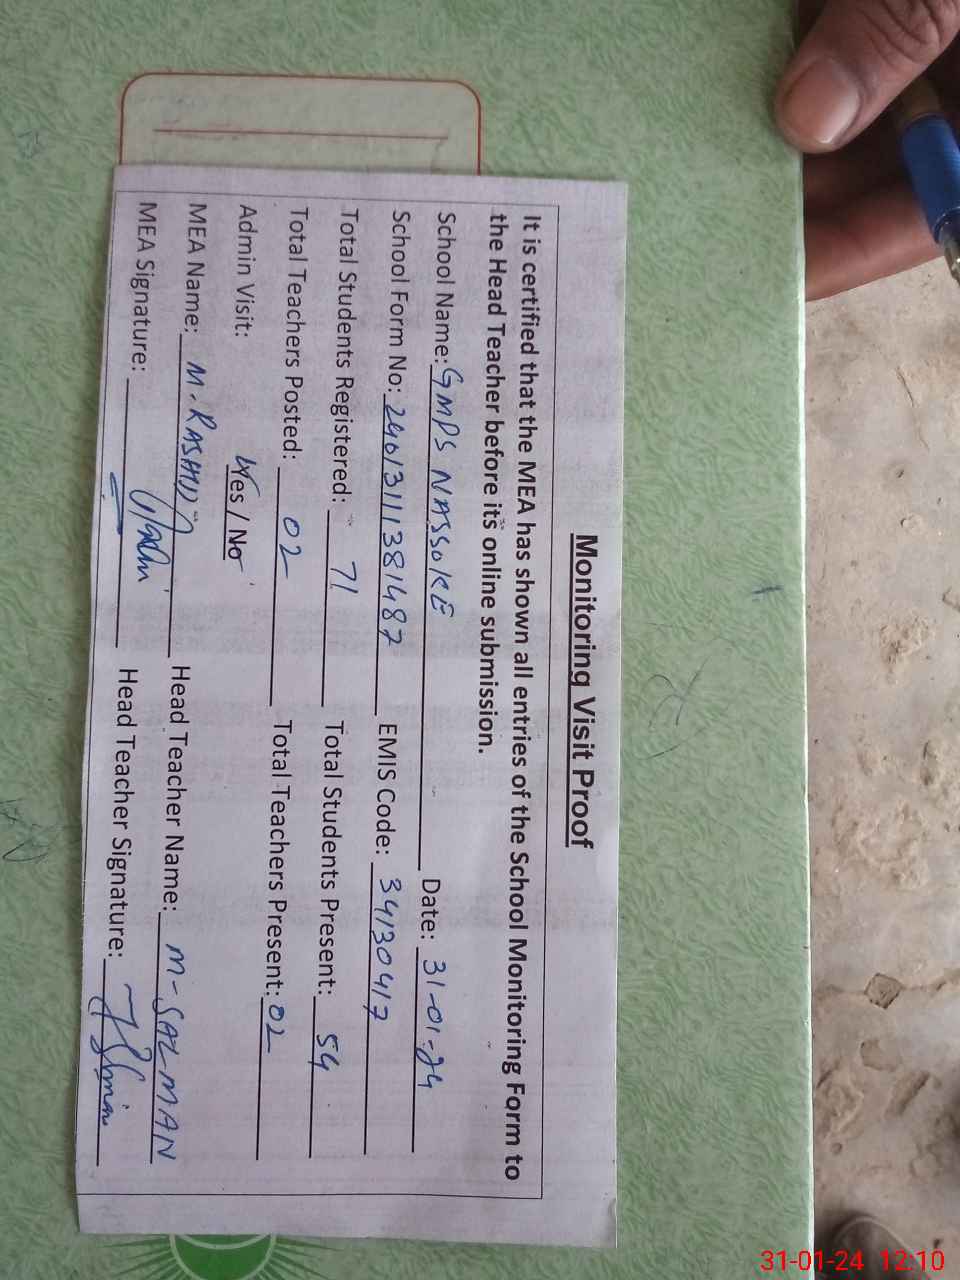 Monitoring Visit Proof
It is certified that the MEA has shown all entries of the School Monitoring Form to
the Head Teacher before its online submission.
School Name: GMPS NASSOKE Date: 31-01-24
School Form No: 24013111381487 EMIS Code: 34130417
Total Students Registered: 71 Total Students Present: 54
Total Teachers Posted: 02 Total Teachers Present: 02
Admin Visit: Yes / No
MEA Name: M. RASHID Head Teacher Name: M-SALMAN
MEA Signature: Head Teacher Signature:
31-01-24 12:10